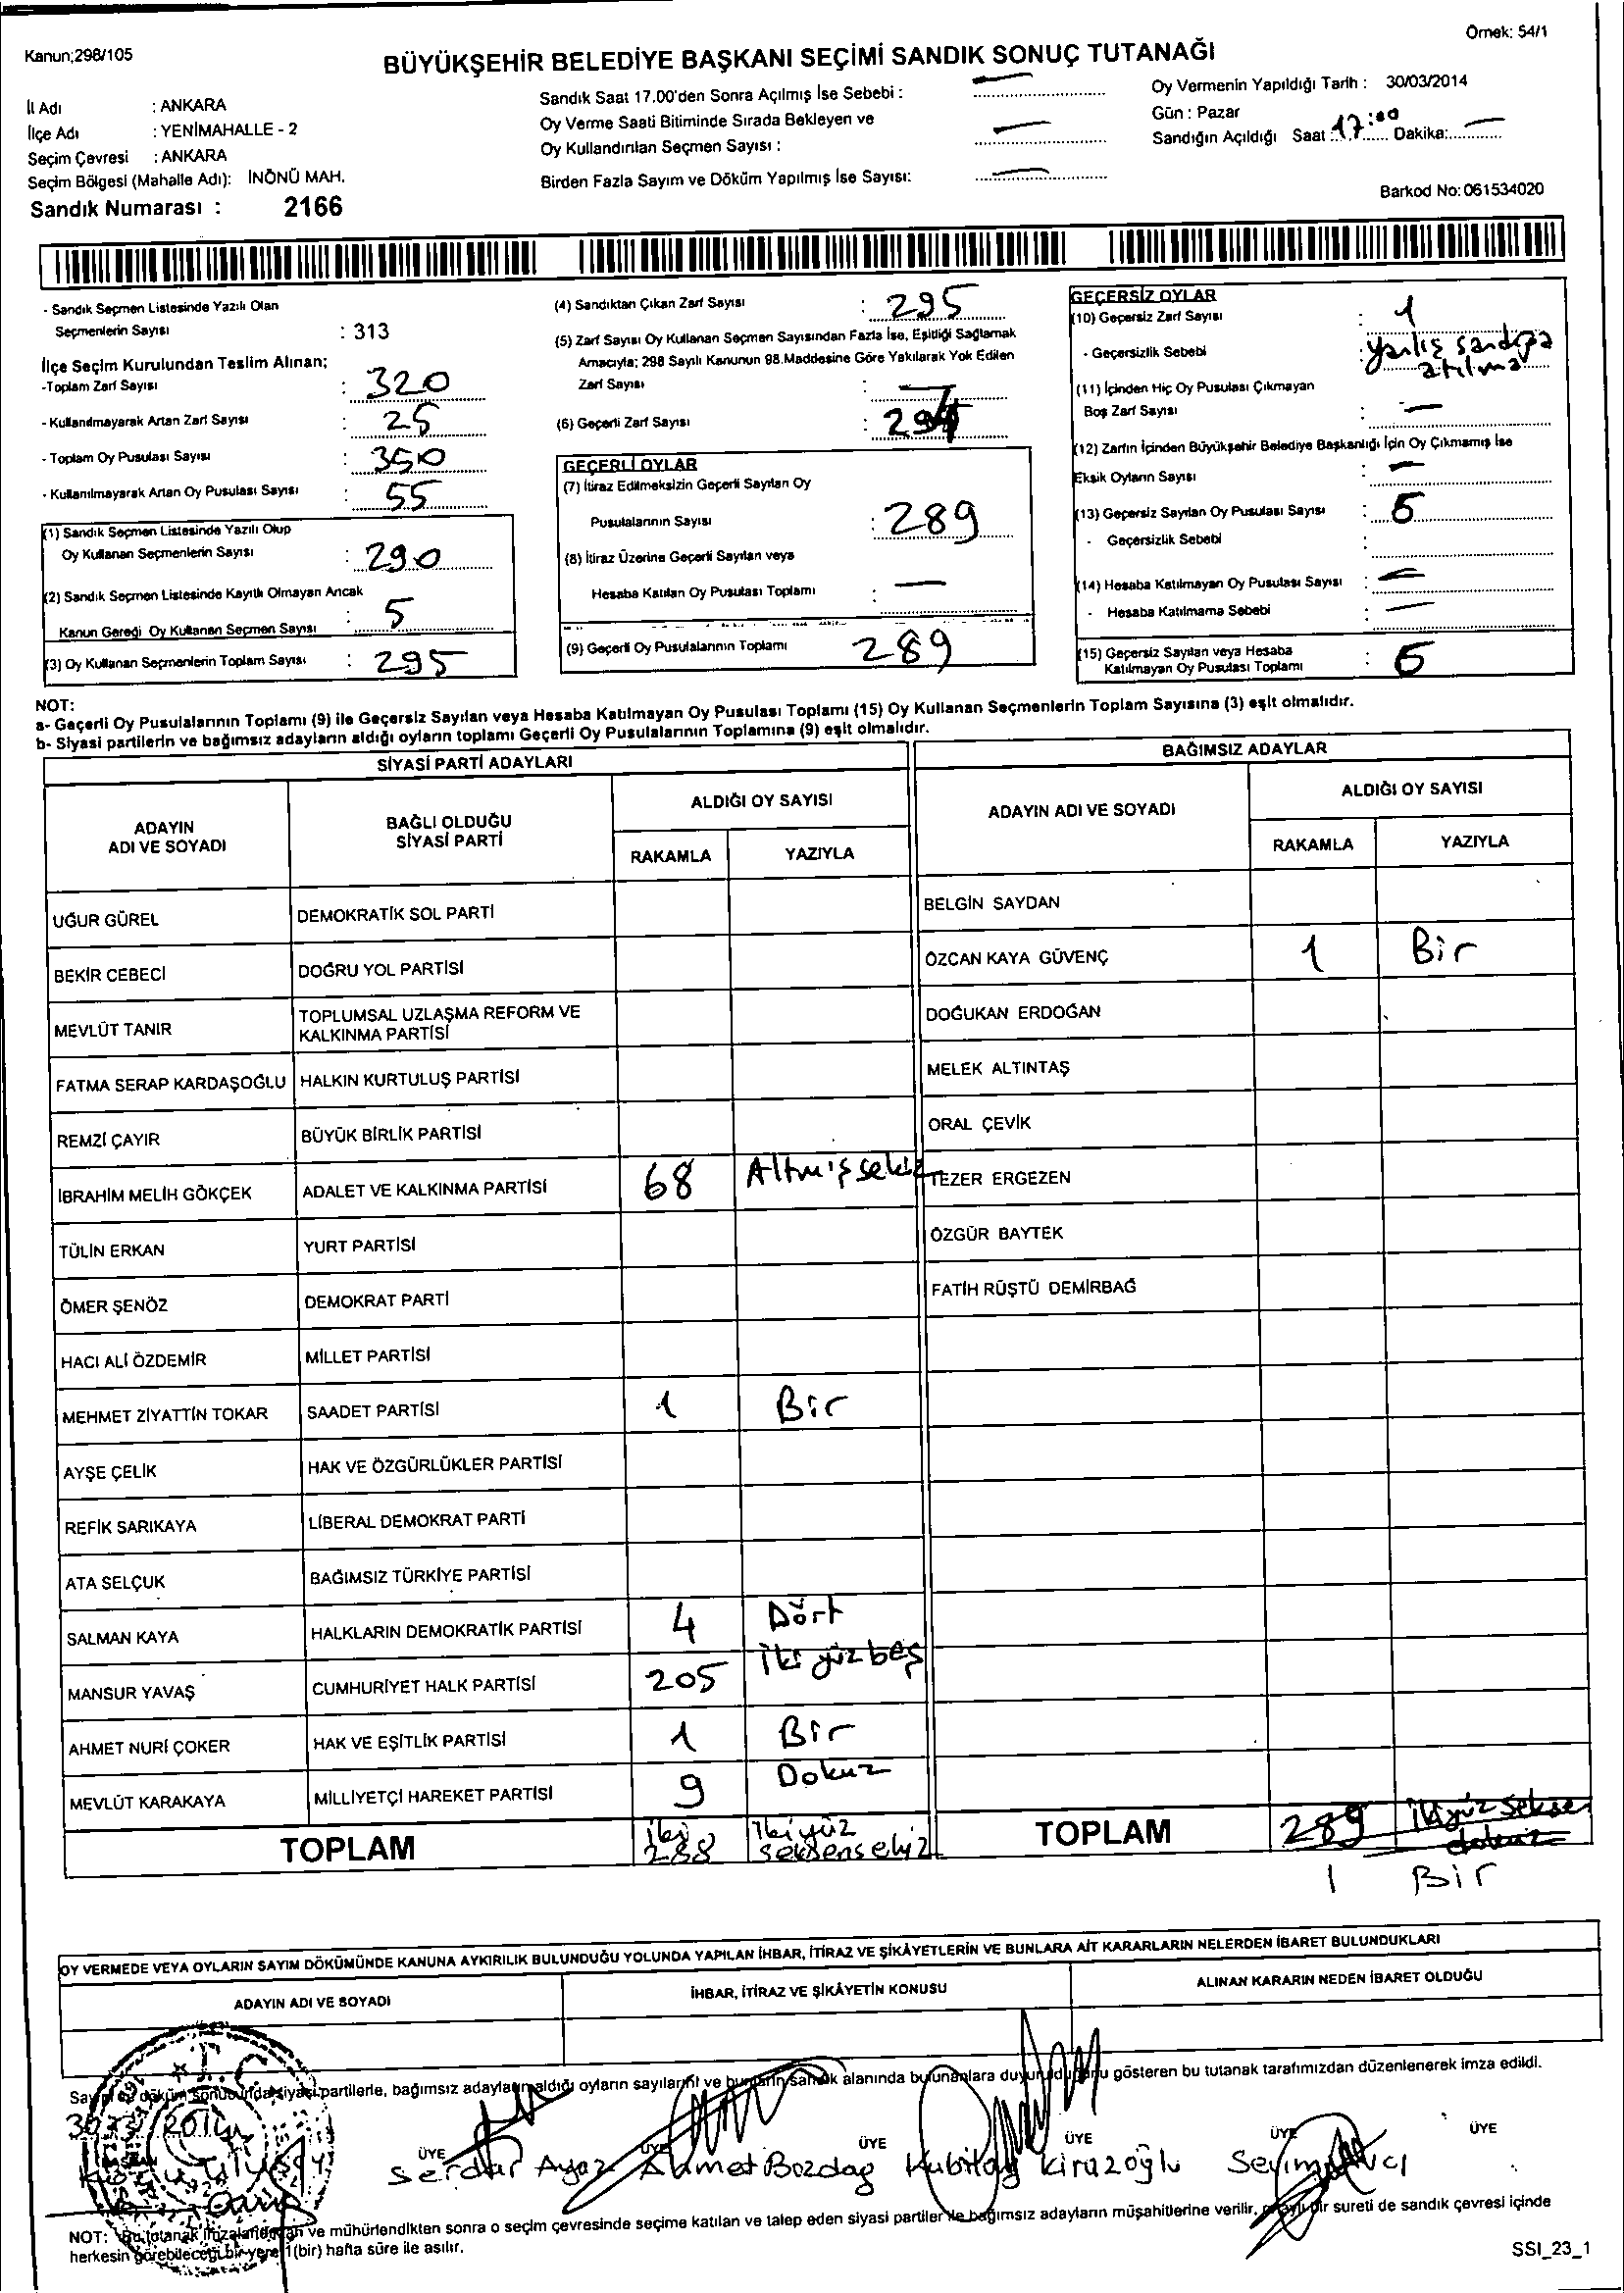 Kanun;298/105
Örnek: 54/1
BÜYÜKŞEHİR BELEDİYE BAŞKANI SEÇİMİ SANDIK SONUÇ TUTANAĞI
İl Adı : ANKARA
İlçe Adı : YENİMAHALLE - 2
Seçim Çevresi : ANKARA
Seçim Bölgesi (Mahalle Adı): İNÖNÜ MAH.
Sandık Numarası : 2166
Sandık Saat 17.00'den Sonra Açılmış İse Sebebi : —
Oy Verme Saati Bitiminde Sırada Bekleyen ve
Oy Kullandırılan Seçmen Sayısı : —
Birden Fazla Sayım ve Döküm Yapılmış İse Sayısı: —
Oy Vermenin Yapıldığı Tarih : 30/03/2014
Gün : Pazar
Sandığın Açıldığı Saat : 17:00 Dakika: —
Barkod No: 061534020
- Sandık Seçmen Listesinde Yazılı Olan
Seçmenlerin Sayısı : 313
İlçe Seçim Kurulundan Teslim Alınan;
-Toplam Zarf Sayısı : 320
- Kullanılmayarak Artan Zarf Sayısı : 25
- Toplam Oy Pusulası Sayısı : 350
- Kullanılmayarak Artan Oy Pusulası Sayısı : 55
(1) Sandık Seçmen Listesinde Yazılı Olup
Oy Kullanan Seçmenlerin Sayısı : 290
(2) Sandık Seçmen Listesinde Kayıtlı Olmayan Ancak
Kanun Gereği Oy Kullanan Seçmen Sayısı : 5
(3) Oy Kullanan Seçmenlerin Toplam Sayısı : 295
(4) Sandıktan Çıkan Zarf Sayısı : 295
(5) Zarf Sayısı Oy Kullanan Seçmen Sayısından Fazla İse, Eşitliği Sağlamak
Amacıyla; 298 Sayılı Kanunun 98.Maddesine Göre Yakılarak Yok Edilen
Zarf Sayısı : —
(6) Geçerli Zarf Sayısı : 294
GEÇERLİ OYLAR
(7) İtiraz Edilmeksizin Geçerli Sayılan Oy
Pusulalarının Sayısı : 289
(8) İtiraz Üzerine Geçerli Sayılan veya
Hesaba Katılan Oy Pusulası Toplamı : —
(9) Geçerli Oy Pusulalarının Toplamı 289
GEÇERSİZ OYLAR
(10) Geçersiz Zarf Sayısı : 1
- Geçersizlik Sebebi : yanlış sandığa
atılma
(11) İçinden Hiç Oy Pusulası Çıkmayan
Boş Zarf Sayısı : —
(12) Zarfın İçinden Büyükşehir Belediye Başkanlığı İçin Oy Çıkmamış İse
Eksik Oyların Sayısı : —
(13) Geçersiz Sayılan Oy Pusulası Sayısı :
- Geçersizlik Sebebi :
(14) Hesaba Katılmayan Oy Pusulası Sayısı : —
- Hesaba Katılmama Sebebi : —
(15) Geçersiz Sayılan veya Hesaba
Katılmayan Oy Pusulası Toplamı :
NOT:
a- Geçerli Oy Pusulalarının Toplamı (9) ile Geçersiz Sayılan veya Hesaba Katılmayan Oy Pusulası Toplamı (15) Oy Kullanan Seçmenlerin Toplam Sayısına (3) eşit olmalıdır.
b- Siyasi partilerin ve bağımsız adayların aldığı oyların toplamı Geçerli Oy Pusulalarının Toplamına (9) eşit olmalıdır.
SİYASİ PARTİ ADAYLARI
ADAYIN ADI VE SOYADI BAĞLI OLDUĞU SİYASİ PARTİ ALDIĞI OY SAYISI
RAKAMLA YAZIYLA
UĞUR GÜREL DEMOKRATİK SOL PARTİ
BEKİR CEBECİ DOĞRU YOL PARTİSİ
MEVLÜT TANIR TOPLUMSAL UZLAŞMA REFORM VE
KALKINMA PARTİSİ
FATMA SERAP KARDAŞOĞLU HALKIN KURTULUŞ PARTİSİ
REMZİ ÇAYIR BÜYÜK BİRLİK PARTİSİ
İBRAHİM MELİH GÖKÇEK ADALET VE KALKINMA PARTİSİ 68 Altmışsekiz
TÜLİN ERKAN YURT PARTİSİ
ÖMER ŞENÖZ DEMOKRAT PARTİ
HACI ALİ ÖZDEMİR MİLLET PARTİSİ
MEHMET ZİYATTİN TOKAR SAADET PARTİSİ 1 Bir
AYŞE ÇELİK HAK VE ÖZGÜRLÜKLER PARTİSİ
REFİK SARIKAYA LİBERAL DEMOKRAT PARTİ
ATA SELÇUK BAĞIMSIZ TÜRKİYE PARTİSİ
SALMAN KAYA HALKLARIN DEMOKRATİK PARTİSİ 4 Dört
MANSUR YAVAŞ CUMHURİYET HALK PARTİSİ 205 İkiyüzbeş
AHMET NURİ ÇOKER HAK VE EŞİTLİK PARTİSİ 1 Bir
MEVLÜT KARAKAYA MİLLİYETÇİ HAREKET PARTİSİ 9 Dokuz
TOPLAM iki 288 İkiyüz
seksensekiz
BAĞIMSIZ ADAYLAR
ADAYIN ADI VE SOYADI ALDIĞI OY SAYISI
RAKAMLA YAZIYLA
BELGİN SAYDAN
ÖZCAN KAYA GÜVENÇ 1 Bir
DOĞUKAN ERDOĞAN
MELEK ALTINTAŞ
ORAL ÇEVİK
TEZER ERGEZEN
ÖZGÜR BAYTEK
FATİH RÜŞTÜ DEMİRBAĞ
TOPLAM 289 İkiyüz seksen
dokuz
1 Bir
OY VERMEDE VEYA OYLARIN SAYIM DÖKÜMÜNDE KANUNA AYKIRILIK BULUNDUĞU YOLUNDA YAPILAN İHBAR, İTİRAZ VE ŞİKÂYETLERİN VE BUNLARA AİT KARARLARIN NELERDEN İBARET BULUNDUKLARI
ADAYIN ADI VE SOYADI İHBAR, İTİRAZ VE ŞİKÂYETİN KONUSU ALINAN KARARIN NEDEN İBARET OLDUĞU
Sayım ve döküm sonucunda siyasi partilerle, bağımsız adayların aldığı oyların sayılarını ve bunların sandık alanında bulunanlara duyurulduğunu gösteren bu tutanak tarafımızdan düzenlenerek imza edildi.
T.C.
ÜYE ÜYE ÜYE ÜYE ÜYE ÜYE
Serdar Ayaz Ahmet Bozdag Kubilay Kirazoğlu
NOT: Bu tutanak imzalandıktan ve mühürlendikten sonra o seçim çevresinde seçime katılan ve talep eden siyasi partiler ile bağımsız adayların müşahitlerine verilir, onaylı bir sureti de sandık çevresi içinde
herkesin görebileceği bir yere 1(bir) hafta süre ile asılır.
SSI_23_1